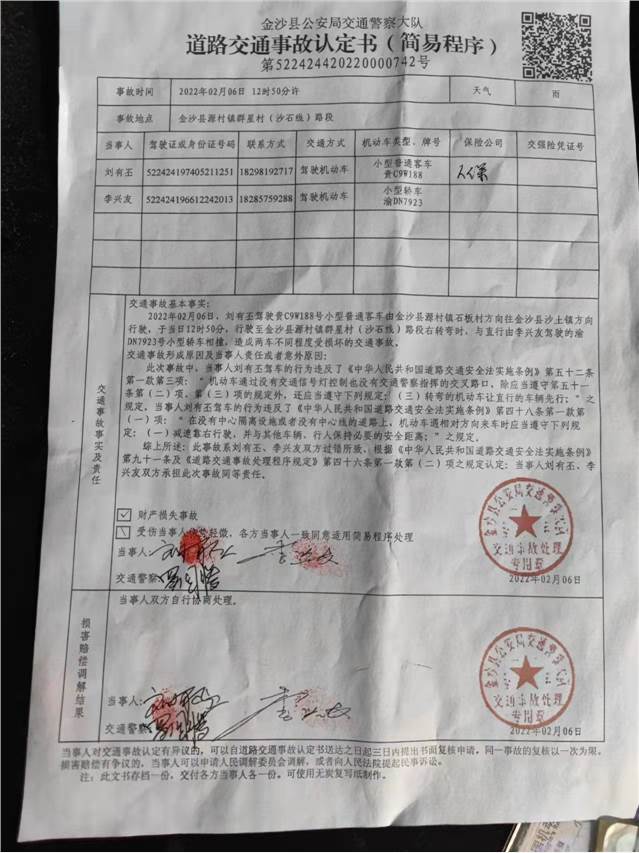 金沙县公安局交通警察大队
道路交通事故认定书（简易程序）
第522424420220000742号
事故时间 2022年02月06日 12时50分许 天气 雨
事故地点 金沙县源村镇群星村（沙石线）路段
当事人 驾驶证或身份证号码 联系方式 交通方式 机动车类型、牌号 保险公司 交强险凭证号
刘有丕 522424197405211251 18298192717 驾驶机动车 小型普通客车 贵C9W188 人保
李兴友 522424196612242013 18285759288 驾驶机动车 小型轿车 渝DN7923
交通事故事实及责任
交通事故基本事实：
2022年02月06日，刘有丕驾驶贵C9W188号小型普通客车由金沙县源村镇石板村方向往金沙县沙土镇方向
行驶，于当日12时50分，行驶至金沙县源村镇群星村（沙石线）路段右转弯时，与直行由李兴友驾驶的渝
DN7923号小型轿车相撞，造成两车不同程度受损坏的交通事故。
交通事故形成原因及当事人责任或者意外原因：
此次事故中，当事人刘有丕驾车的行为违反了《中华人民共和国道路交通安全法实施条例》第五十二条
第一款第三项：“机动车通过没有交通信号灯控制也没有交通警察指挥的交叉路口，除应当遵守第五十一
条第（二）项、第（三）项的规定外，还应当遵守下列规定：（三）转弯的机动车让直行的车辆先行；”之
规定，当事人刘有丕驾车的行为违反了《中华人民共和国道路交通安全法实施条例》第四十八条第一款第
（一）项：“在没有中心隔离设施或者没有中心线的道路上，机动车遇相对方向来车时应当遵守下列规
定：（一）减速靠右行驶，并与其他车辆、行人保持必要的安全距离；”之规定。
综上所述：此事故系刘有丕、李兴友双方过错所致，根据《中华人民共和国道路交通安全法实施条例》
第九十一条及《道路交通事故处理程序规定》第四十六条第一款第（二）项之规定认定：当事人刘有丕、李
兴友双方承担此次事故同等责任。
财产损失事故
受伤当事人伤势轻微，各方当事人一致同意适用简易程序处理
当事人：
交通警察：
金沙县公安局交通警察大队
交通事故处理
专用章
2022年02月06日
损害赔偿调解结果
当事人双方自行协商处理。
当事人：
交通警察：
金沙县公安局交通警察大队
交通事故处理
专用章
2022年02月06日
当事人对交通事故认定有异议的，可以自道路交通事故认定书送达之日起三日内提出书面复核申请，同一事故的复核以一次为限。
损害赔偿有争议的，当事人可以申请人民调解委员会调解，或者向人民法院提起民事诉讼。
注：此文书存档一份，交付各方当事人各一份，可使用无炭复写纸制作。